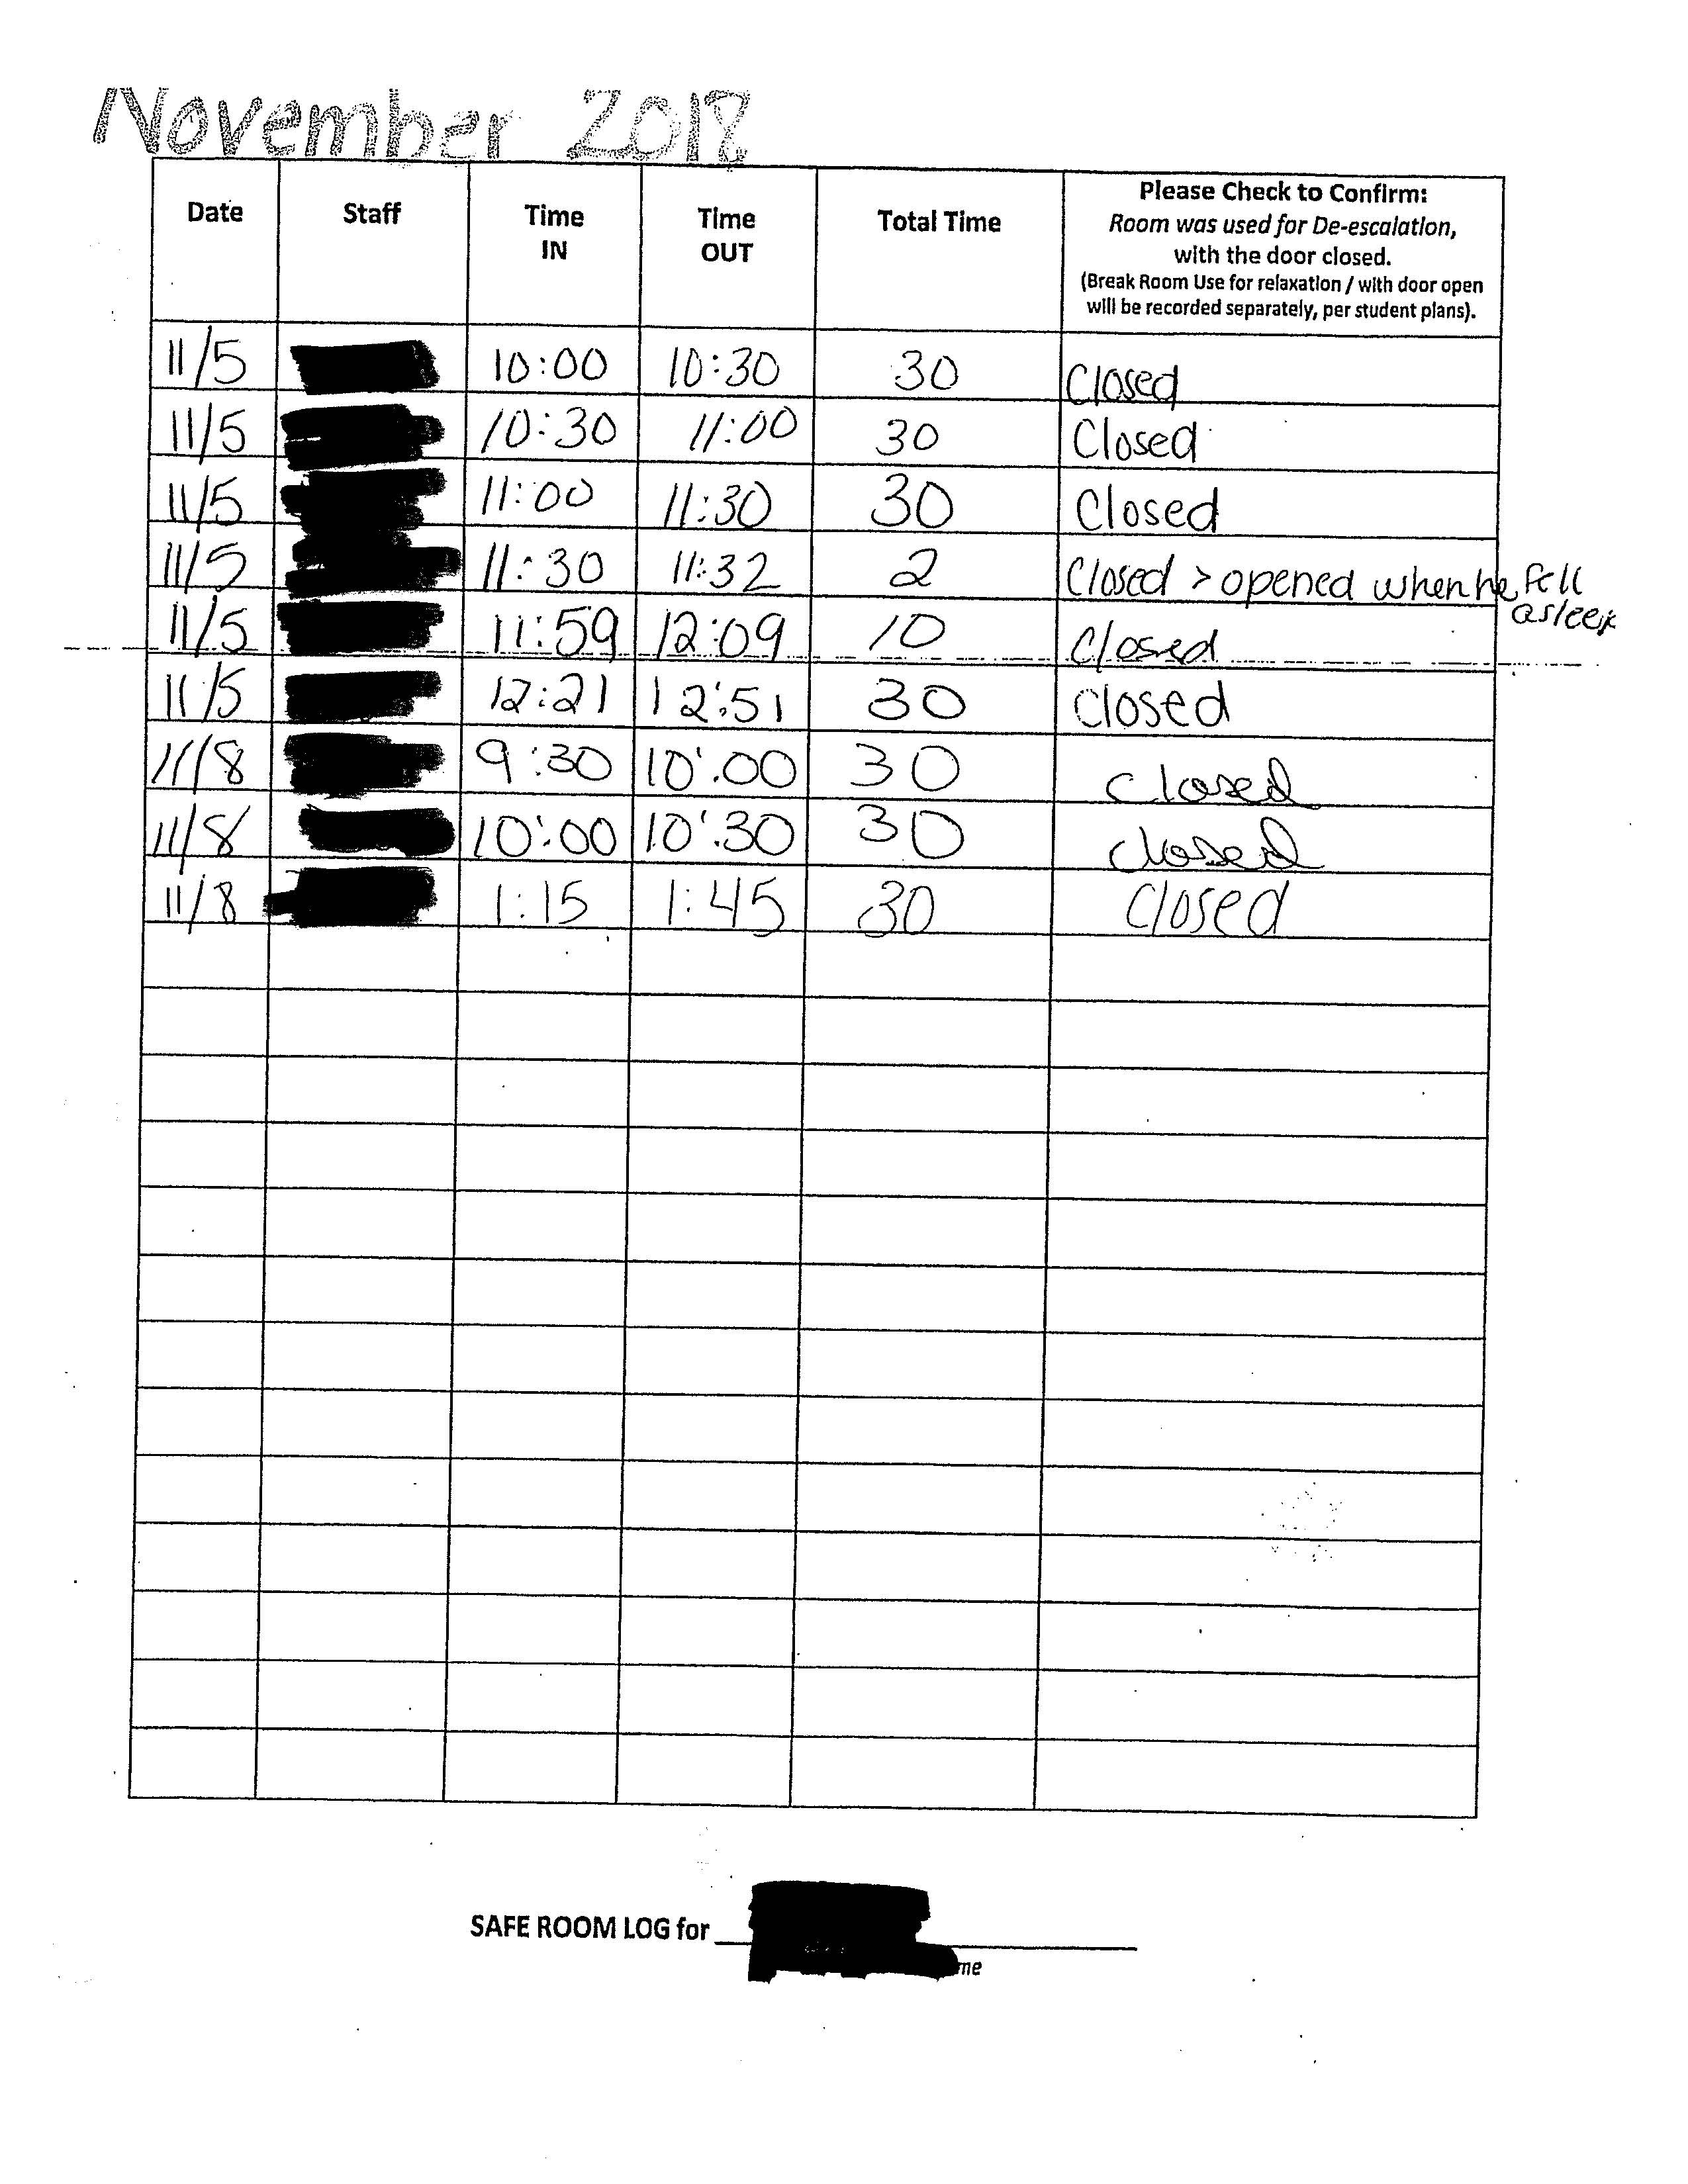 November 2018
Date Staff Time IN Time OUT Total Time Please Check to Confirm:
Room was used for De-escalation,
with the door closed.
(Break Room Use for relaxation / with door open
will be recorded separately, per student plans).
11/5 10:00 10:30 30 Closed
11/5 10:30 11:00 30 Closed
11/5 11:00 11:30 30 Closed
11/5 11:30 11:32 2 Closed > opened when he fell
asleep
11/5 11:59 12:09 10 Closed
11/5 12:21 12:51 30 Closed
11/8 9:30 10:00 30 closed
11/8 10:00 10:30 30 closed
11/8 1:15 1:45 30 Closed
SAFE ROOM LOG for
me